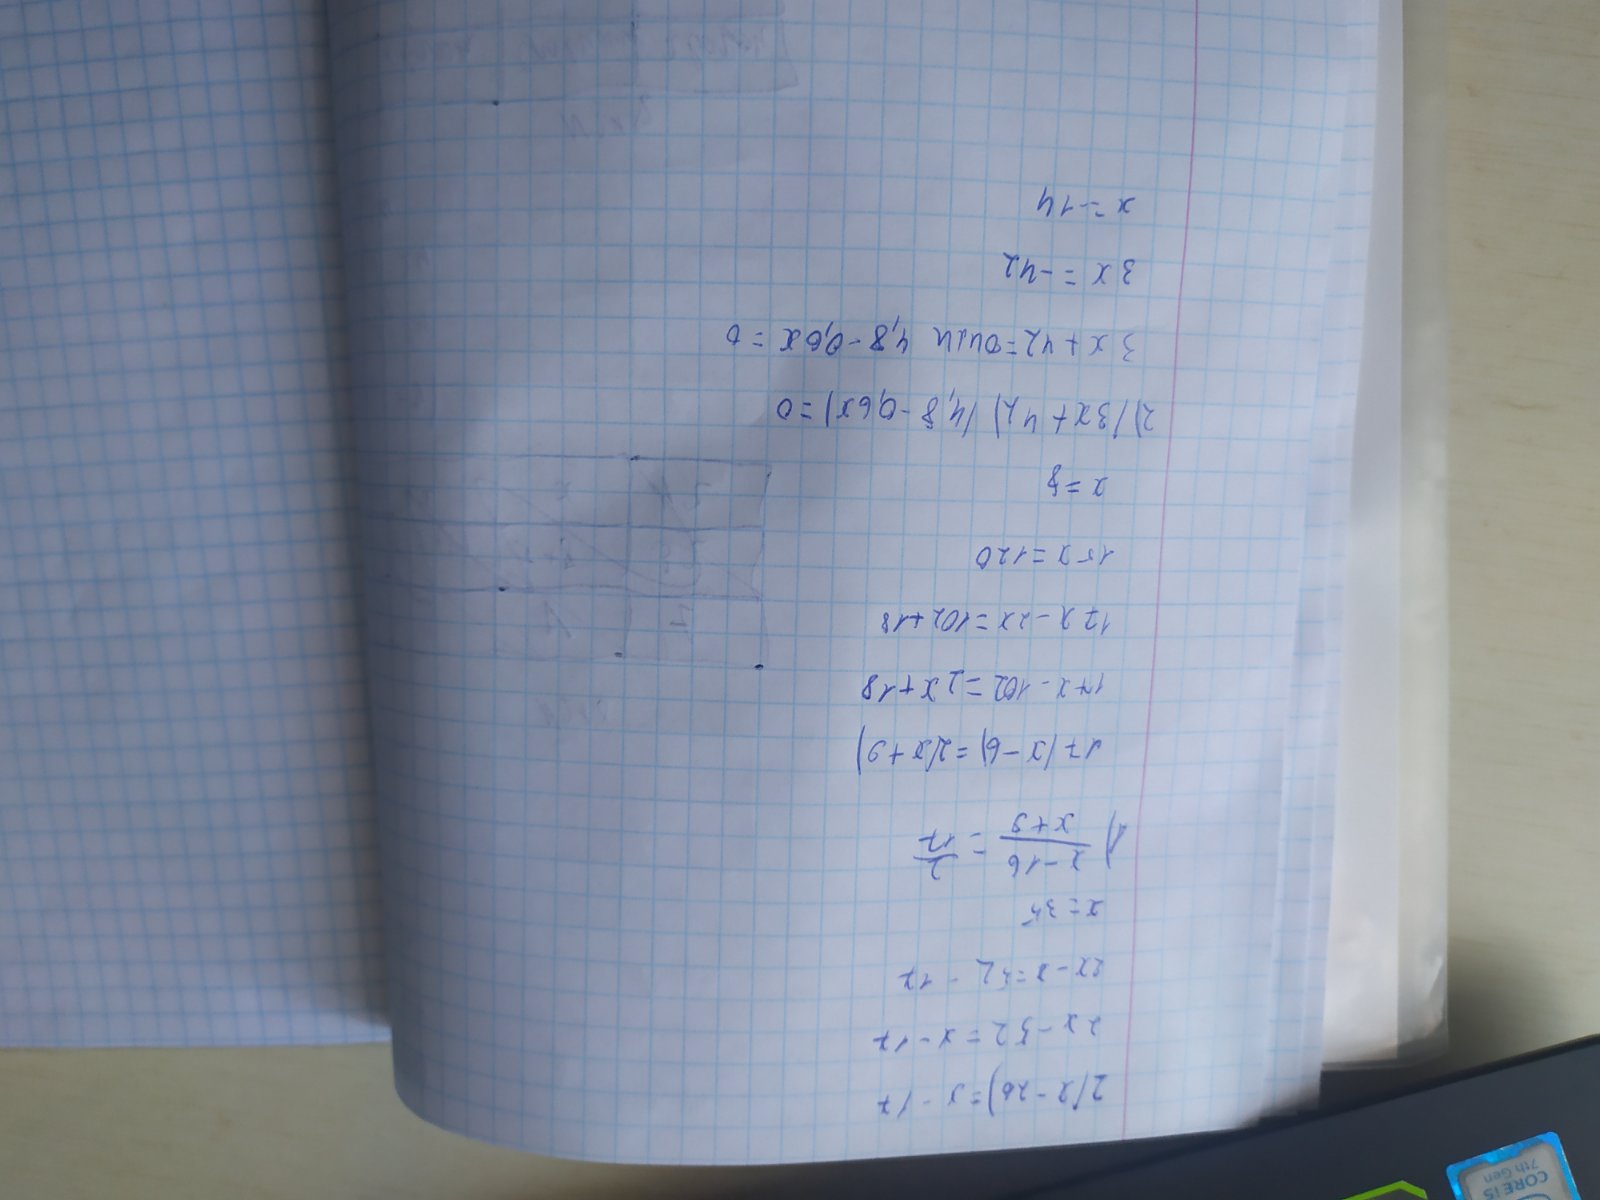 2(x-26)=x-17
2x-52=x-17
2x-x=52-17
x=35
1) x-16/x+9 = 2/17
17(x-6)=2(x+9)
17x-102=2x+18
17x-2x=102+18
15x=120
x=8
2)(3x+42)(4,8-0,6x)=0
3x+42=0или 4,8-0,6x=0
3x=-42
x=-14
CORE i5
7th Gen